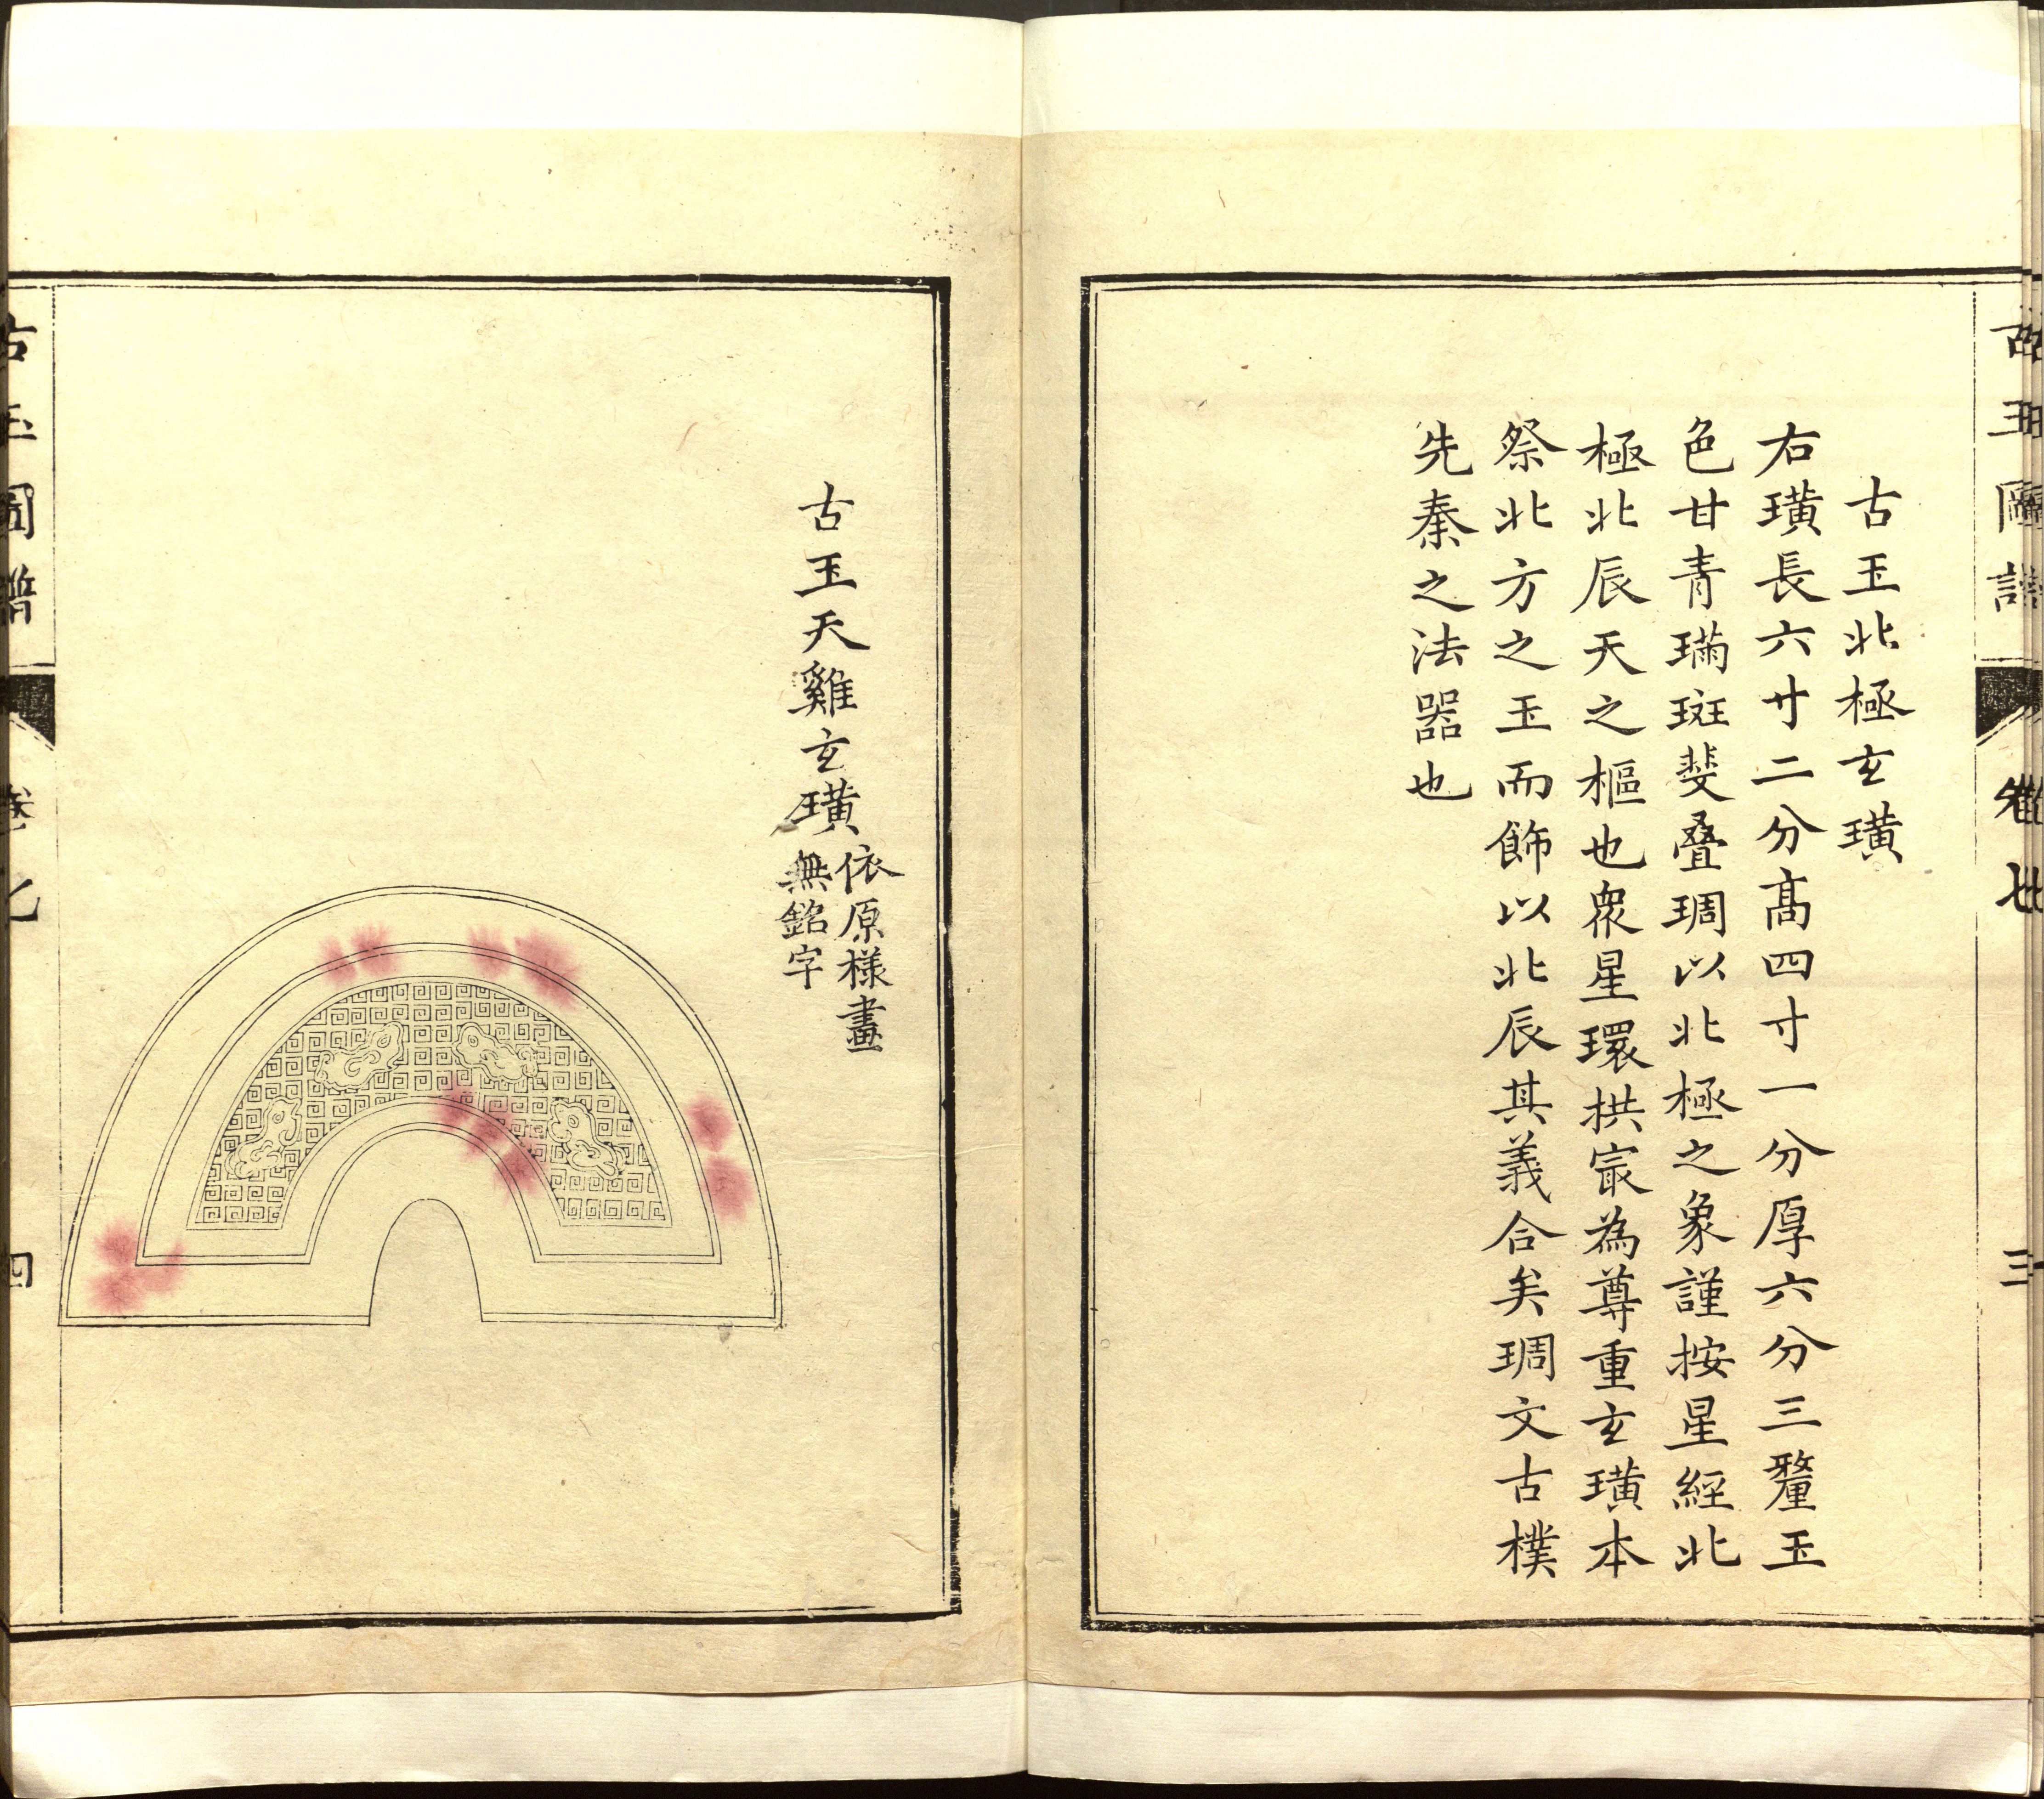 古玉圖譜 卷七 三
古玉北極玄璜
右璜長六寸二分高四寸一分厚六分三釐玉
色甘青璊斑斐叠琱以北極之象謹按星經北
極北辰天之樞也衆星環拱冣為尊重玄璜本
祭北方之玉而飾以北辰其義合矣琱文古樸
先秦之法器也
古玉天雞玄璜
依原樣畫
無銘字
古玉圖譜 卷七 四